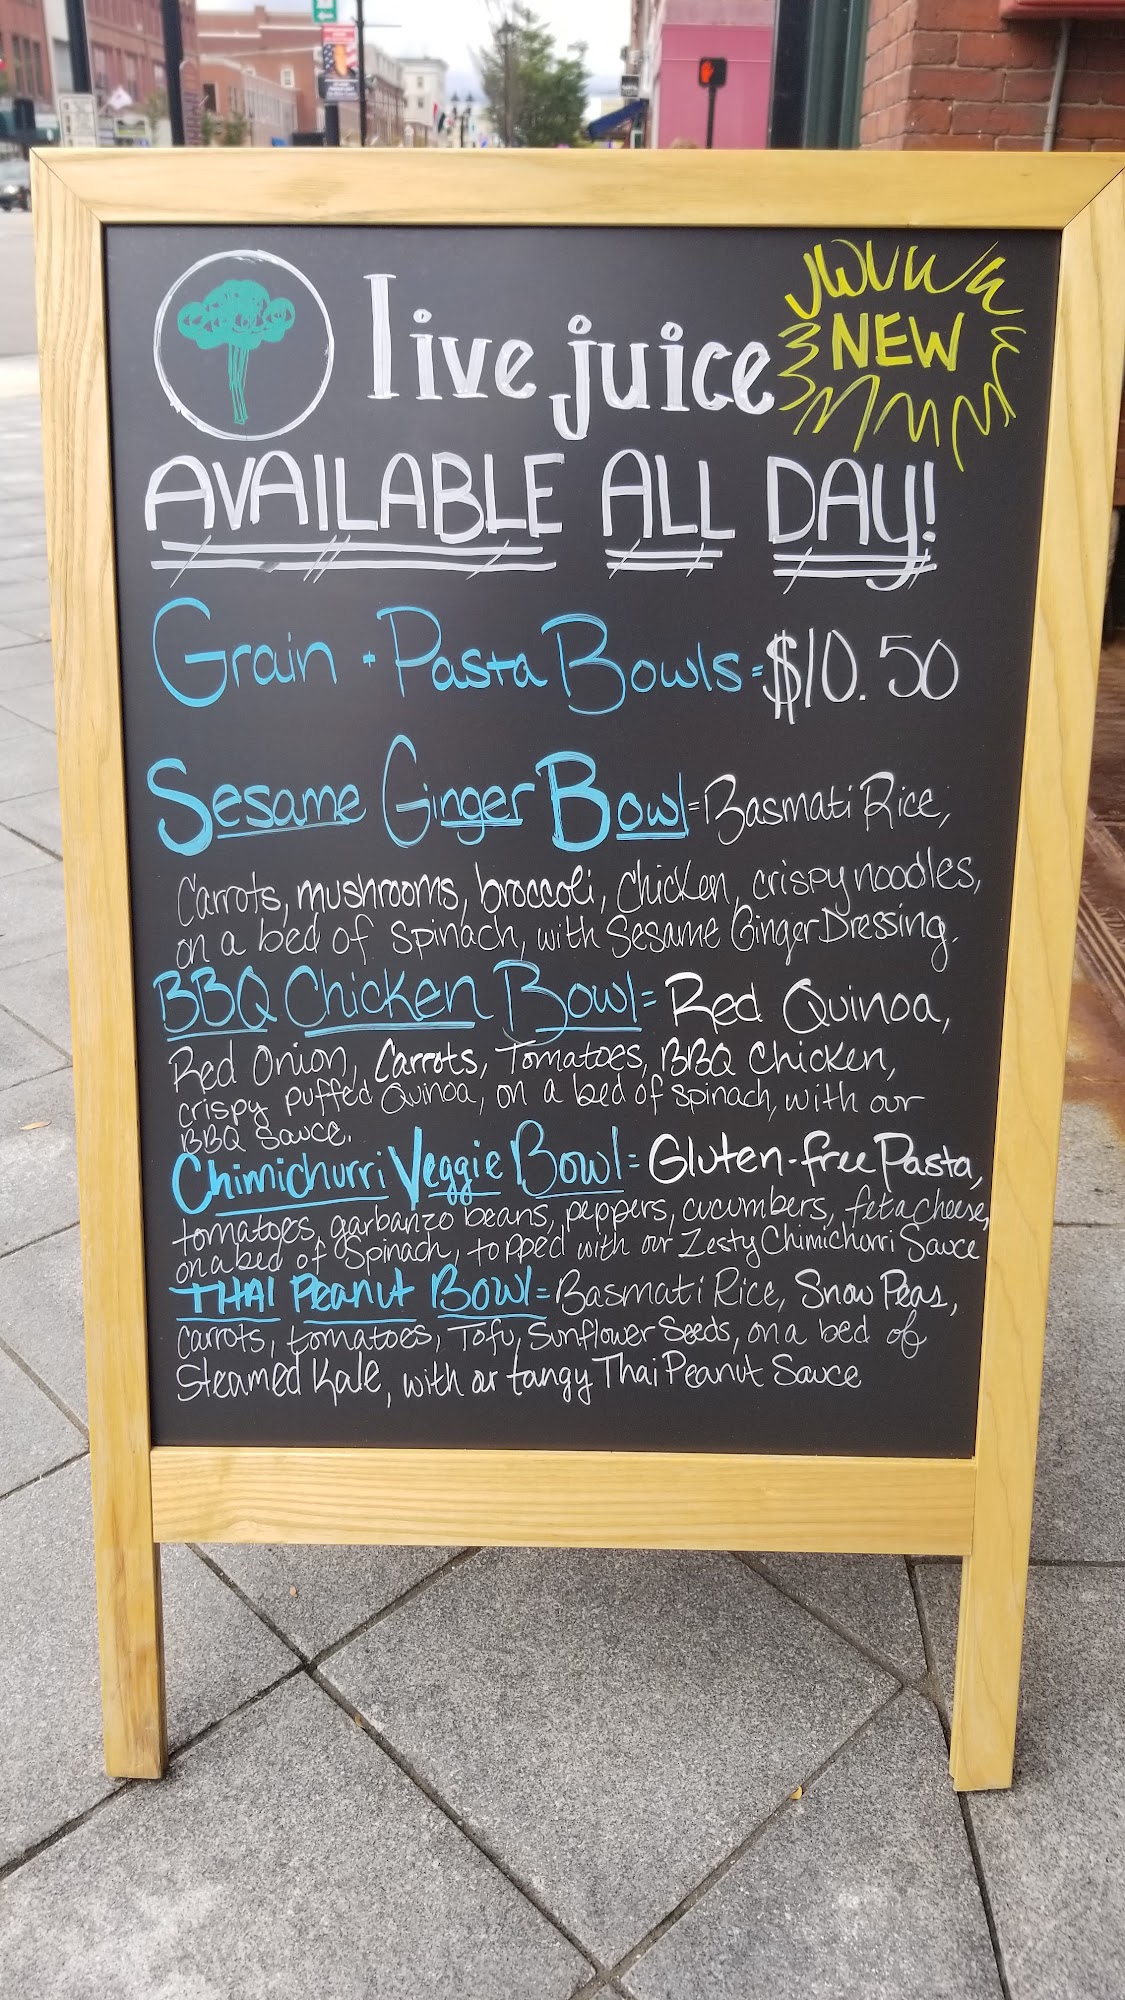 live juice
NEW
AVAILABLE ALL DAY!
Grain + Pasta Bowls = $10.50
Sesame Ginger Bowl = Basmati Rice,
Carrots, mushrooms, broccoli, chicken, crispy noodles,
on a bed of spinach, with Sesame Ginger Dressing.
BBQ Chicken Bowl = Red Quinoa,
Red Onion, Carrots, Tomatoes, BBQ Chicken,
crispy puffed Quinoa, on a bed of spinach, with our
BBQ Sauce.
Chimichurri Veggie Bowl = Gluten-free Pasta,
tomatoes, garbanzo beans, peppers, cucumbers, feta cheese,
on a bed of Spinach, topped with our Zesty Chimichurri Sauce
THAI Peanut Bowl = Basmati Rice, Snow Peas,
Carrots, tomatoes, Tofu, Sunflower Seeds, on a bed of
Steamed Kale, with our tangy Thai Peanut Sauce